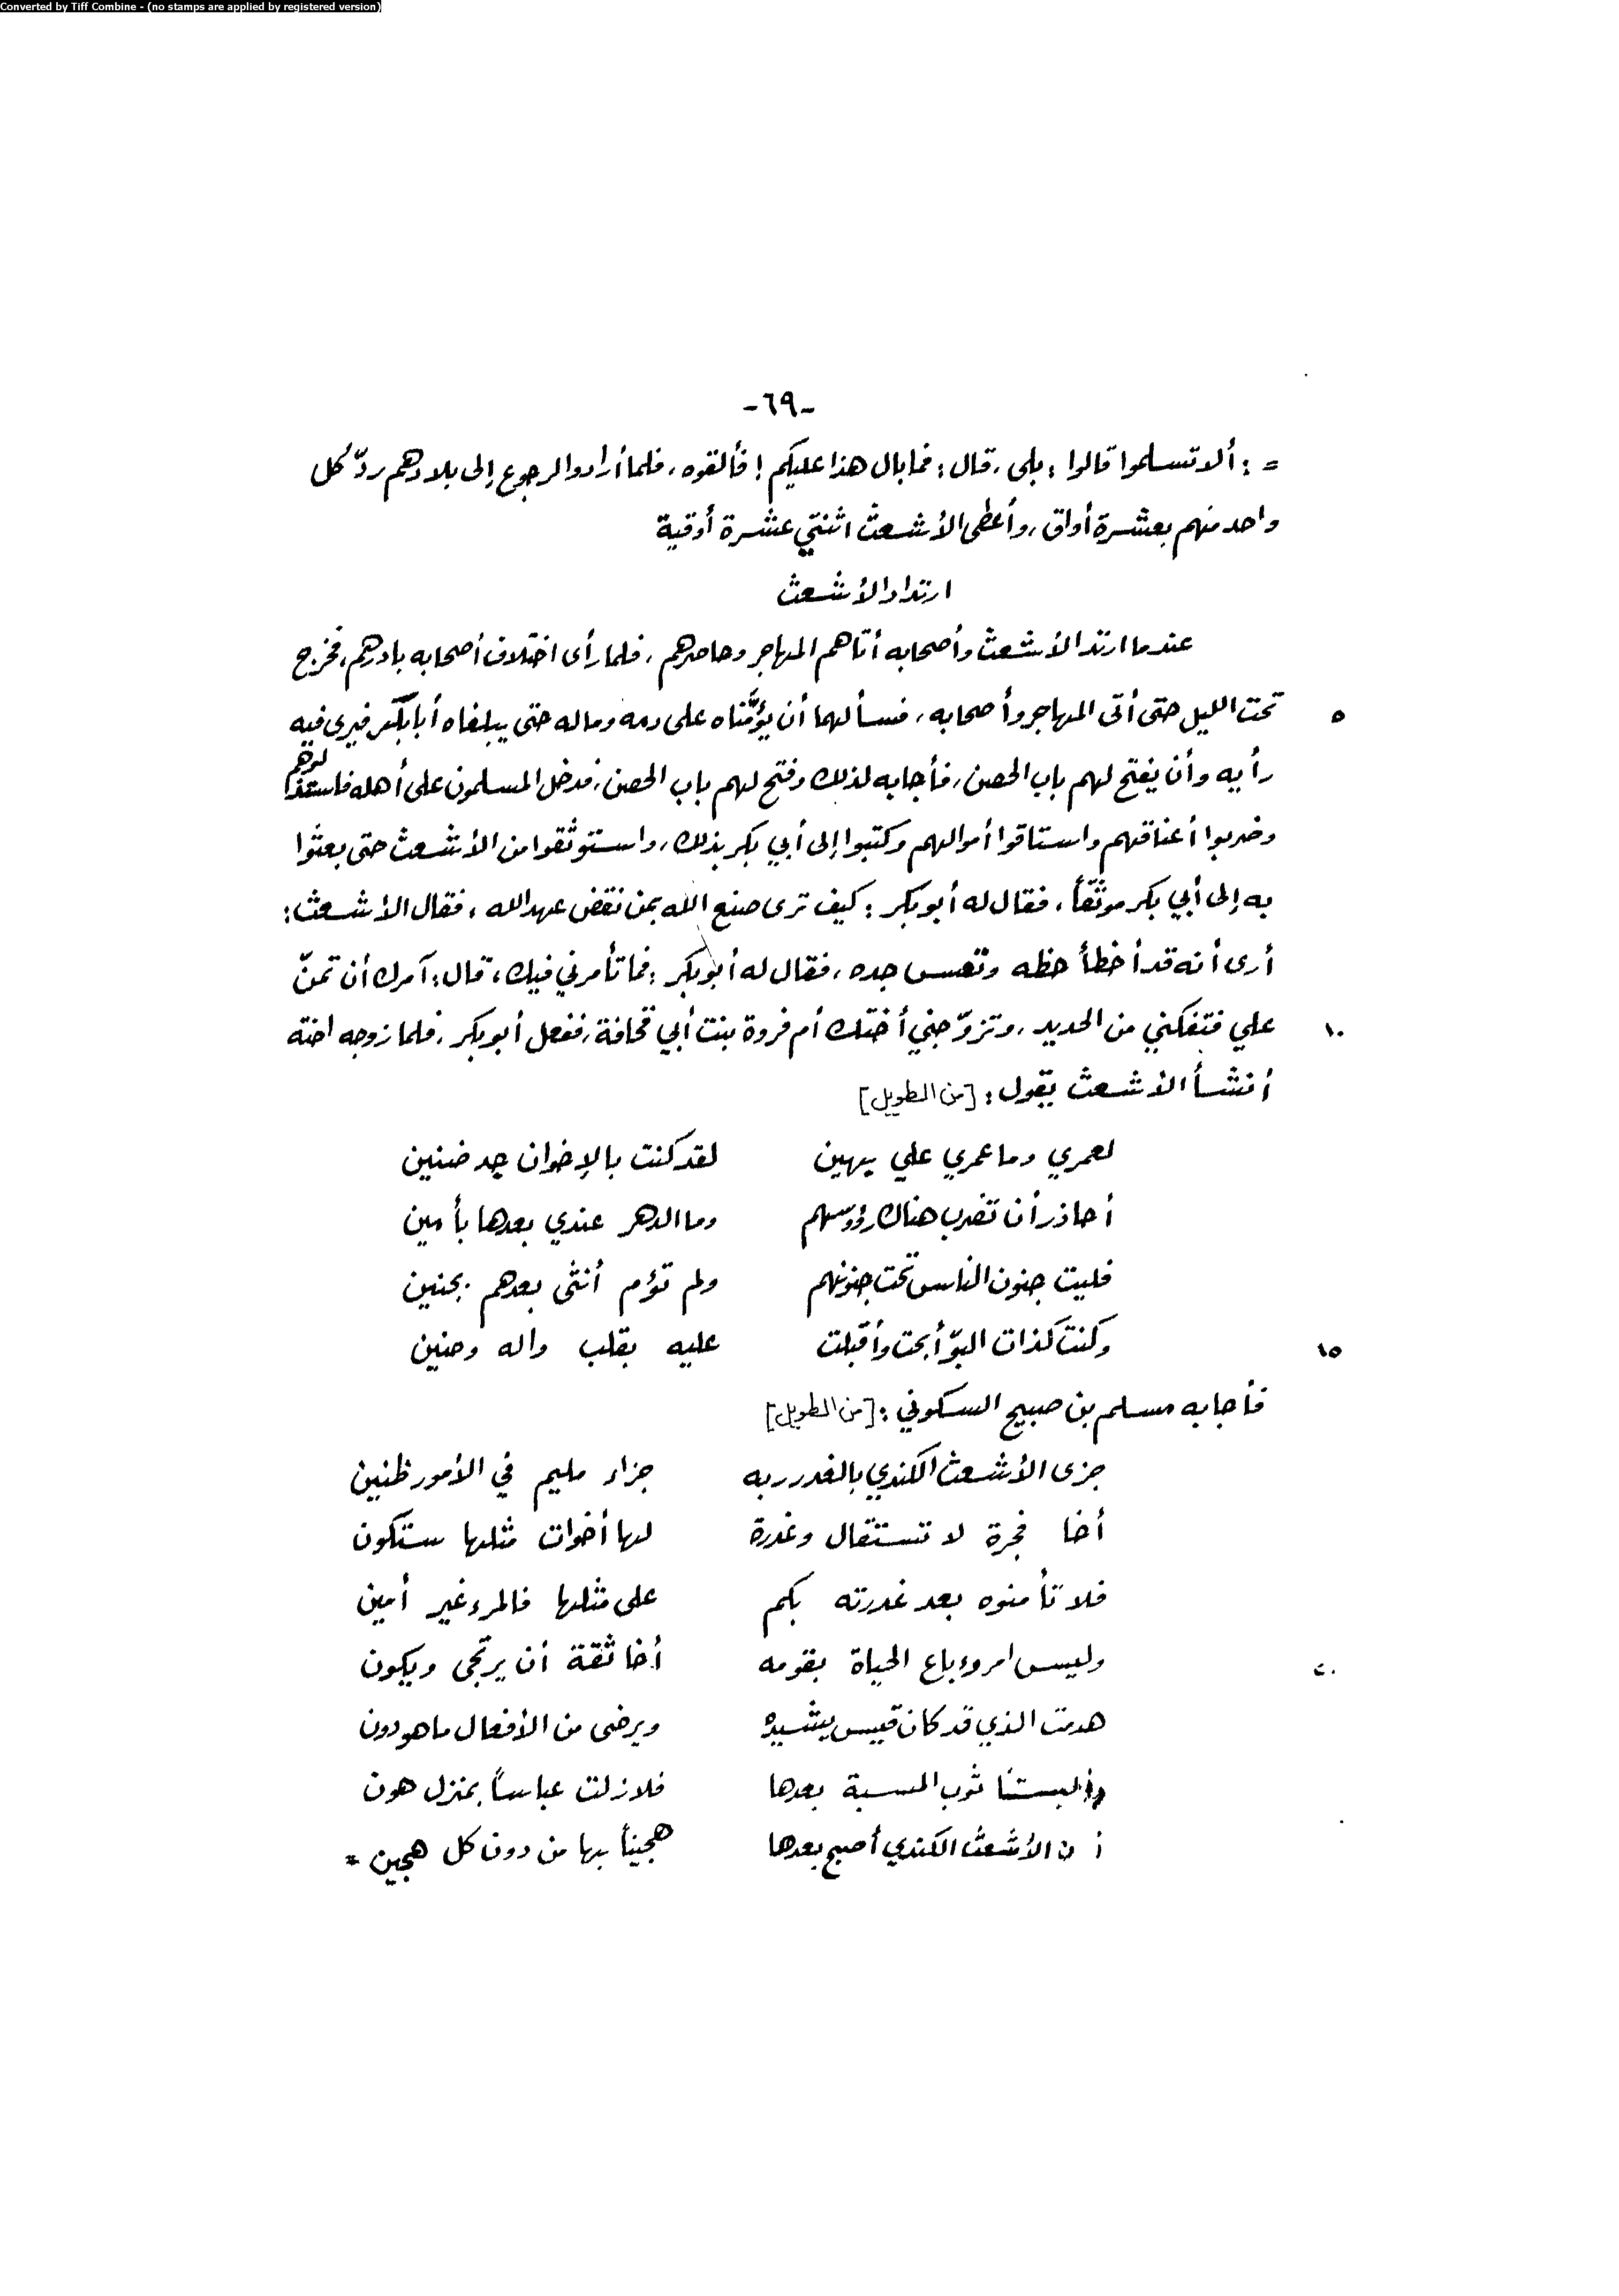 Converted by Tiff Combine - (no stamps are applied by registered version)
-٦٩-
= : ألا تسلموا قالوا : بلى ، قال : فما بال هذا عليكم ! فألقوه ، فلما أرادوا الرجوع إلى بلادهم ردّ كل
واحد منهم بعشرة أواق ، وأعطى الأشعث اثنتي عشرة أوقية
ارتداد الأشعث
عندما ارتد الأشعث وأصحابه أتاهم المهاجر وحاصرهم ، فلما رأى اختلاف أصحابه بادرهم ، فخرج
٥ تحت الليل حتى أتى المهاجر وأصحابه ، فسألهما أن يؤمَّناه على دمه وماله حتى يبلغاه أبا بكر فيرى فيه
رأيه وأن يفتح لهم باب الحصن ، فأجابه لذلك وفتح لهم باب الحصن ، فدخل المسلمون على أهله فاستنزلوهم
وضربوا أعناقهم واستاقوا أموالهم وكتبوا إلى أبي بكر بذلك ، واستوثقوا من الأشعث حتى بعثوا
به إلى أبي بكر موثّقاً ، فقال له أبو بكر : كيف ترى صنع الله بمن نقض عهد الله ، فقال الأشعث :
أرى أنه قد أخطأ حظه وتعس جده ، فقال له أبو بكر : فما تأمرني فيك ، قال : آمرك أن تمنّ
١٠ علي فتفكني من الحديد ، وتزوّجني أختك أم فروة بنت أبي قحافة ، ففعل أبو بكر ، فلما زوجه اخته
أنشأ الأشعث يقول : [من الطويل]
لعمري وما عمري علي بهين لقد كنت بالإخوان جد ضنين
أحاذر أن تضرب هناك رؤوسهم وما الدهر عندي بعدها بأمين
فليت جنون الناس تحت جنونهم ولم تؤم أنثى بعدهم بجنين
١٥ وكنت كذات البوّ أبحت وأقبلت عليه بقلب واله وحنين
فأجابه مسلم بن صبيح السكوني : [من الطويل]
جزى الأشعث الكندي بالغدر ربه جزاء مليم في الأمور ظنين
أخا فجرة لا تستقال وغدرة لها أخوات مثلها ستكون
فلا تأمنوه بعد غدرته بكم على مثلها فالمرء غير أمين
٢٠ وليس امروء باع الحياة بقومه أخا ثقة أن يرتجى ويكون
هدمت الذي قد كان قيس يشيده ويرضى من الأفعال ما هو دون
وألبستنا ثوب المسبة بعدها فلا زلت عباساً بمنزل هون
أن الأشعث الكندي أصبح بعدها هجيناً بها من دون كل هجين =